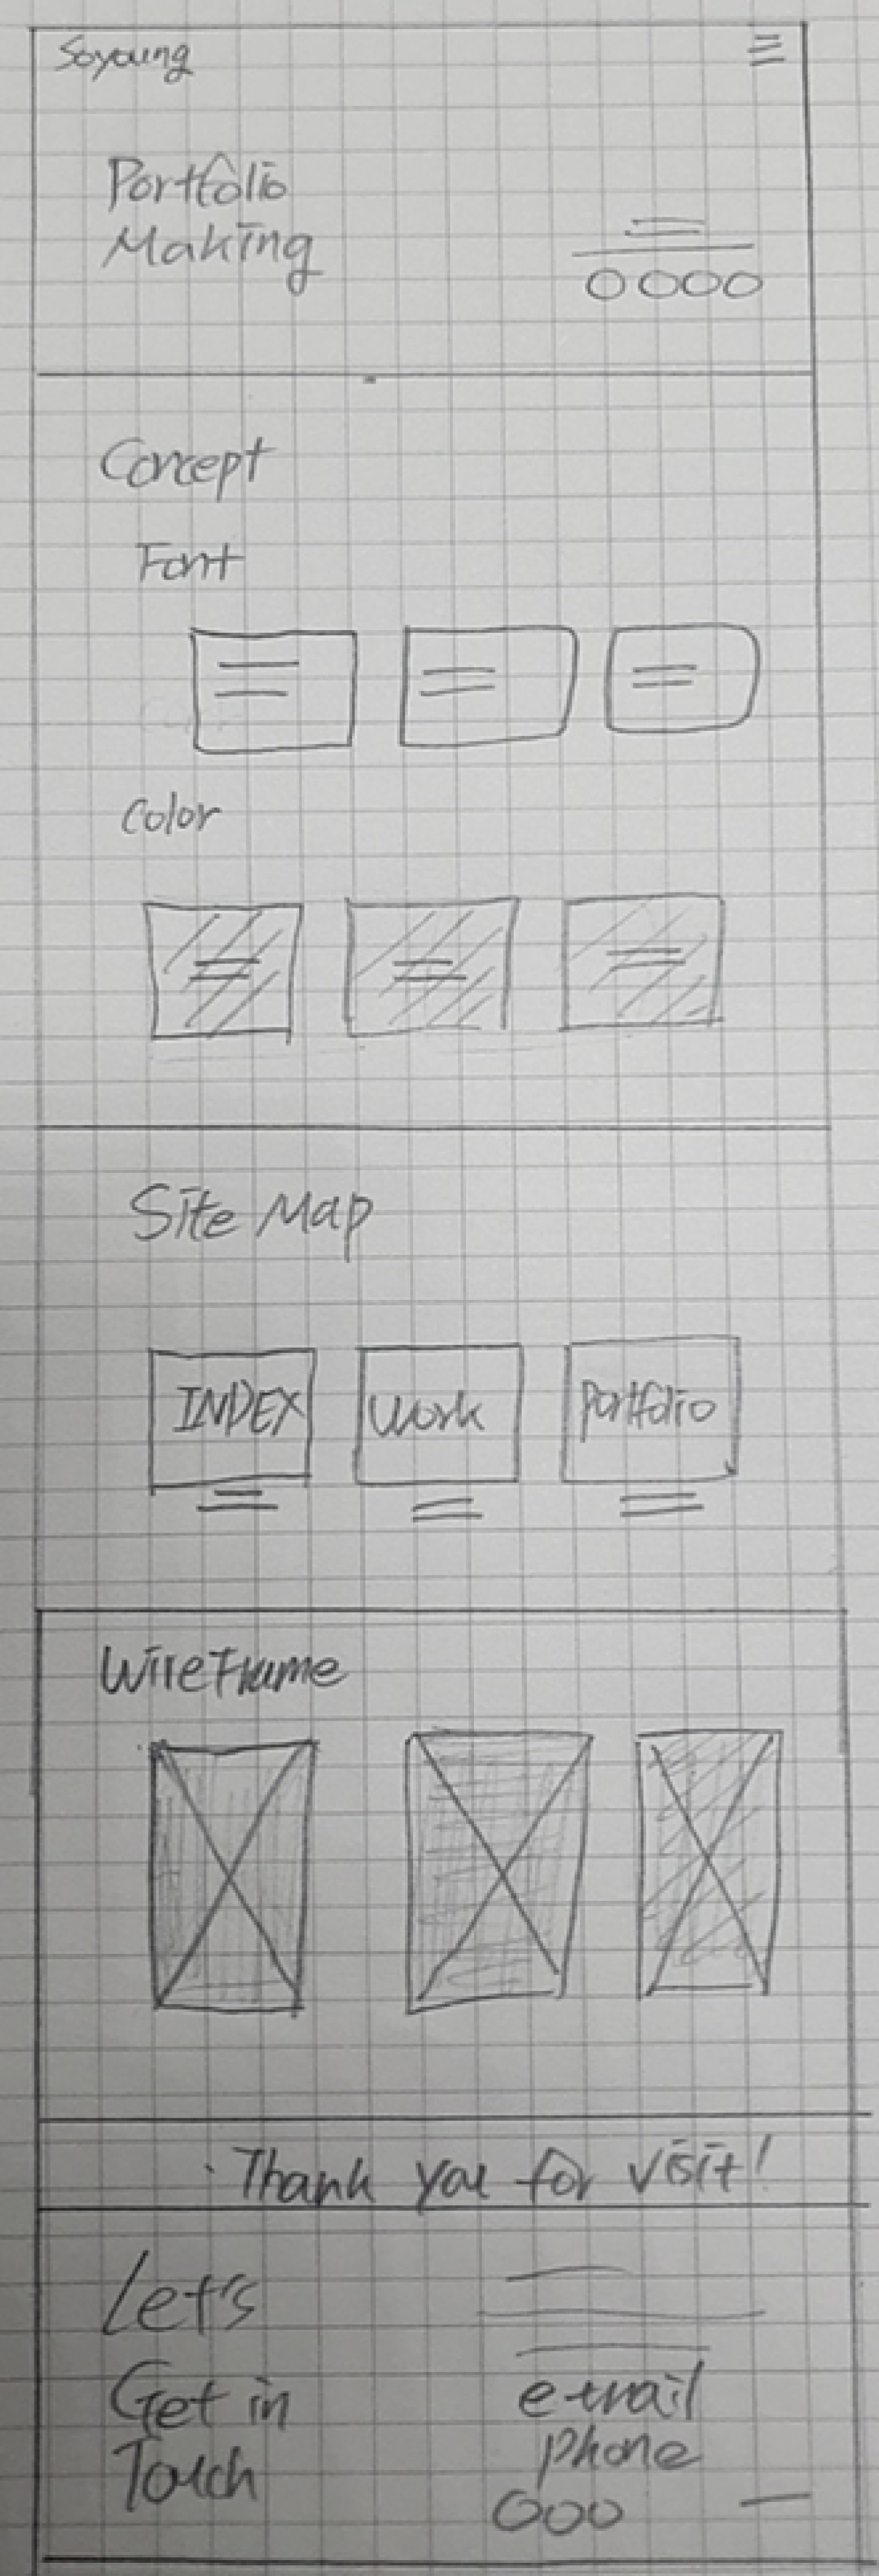 Soyoung
Portfolio
Making
Concept
Font
Color
Site Map
INDEX
Work
Portfolio
WireFrame
Thank you for visit!
Let's
Get in
Touch
e-mail
phone